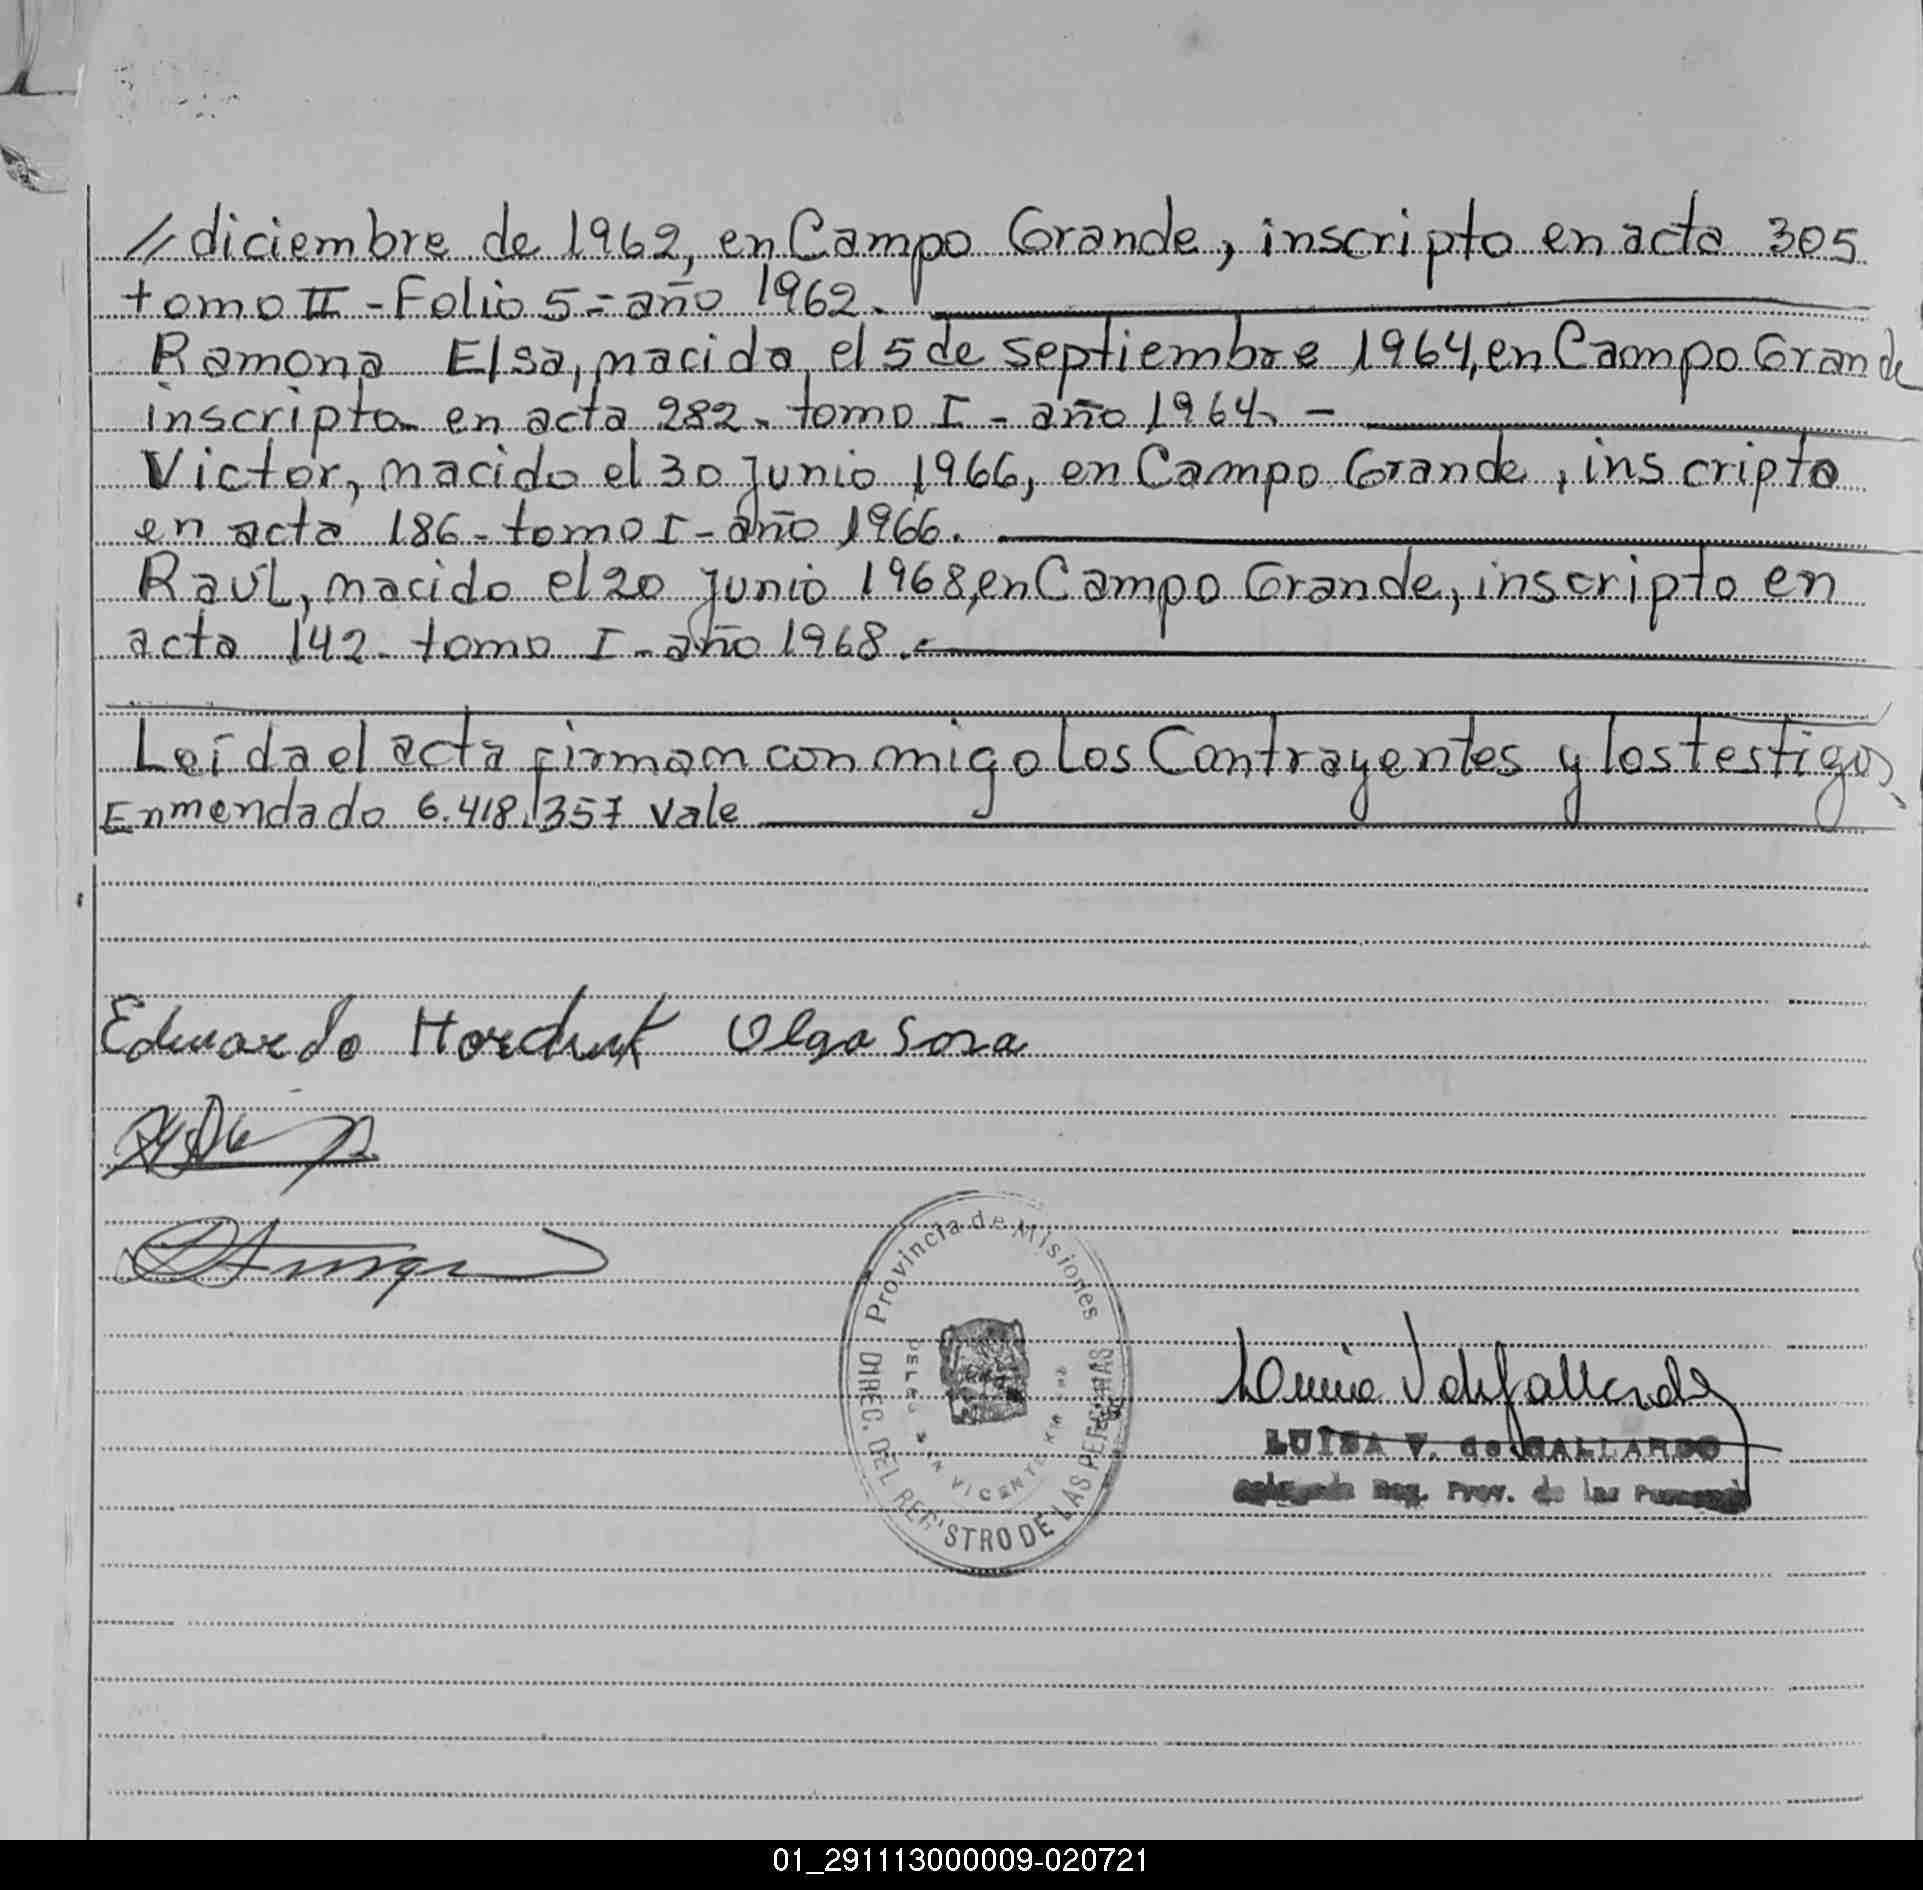 // diciembre de 1962, en Campo Grande, inscripto en acta 305
tomo II - Folio 5 = año 1962.
Ramona Elsa, nacida el 5 de septiembre 1964, en Campo Grande
inscripta en acta 282 - tomo I - año 1964. -
Victor, nacido el 30 junio 1966, en Campo Grande, inscripto
en acta 186 - tomo I - año 1966.
Raúl, nacido el 20 junio 1968, en Campo Grande, inscripto en
acta 142 - tomo I - año 1968.
Leída el acta firman conmigo los Contrayentes y los testigos
Enmendado 6.418.357 vale
Eduardo Olga Sosa
Provincia de Misiones
DIREC. DEL REGISTRO DE LAS PERSONAS
SAN VICENTE
LUISA V. de GALLARDO
Reg. Prov. de las Personas
01_291113000009-020721